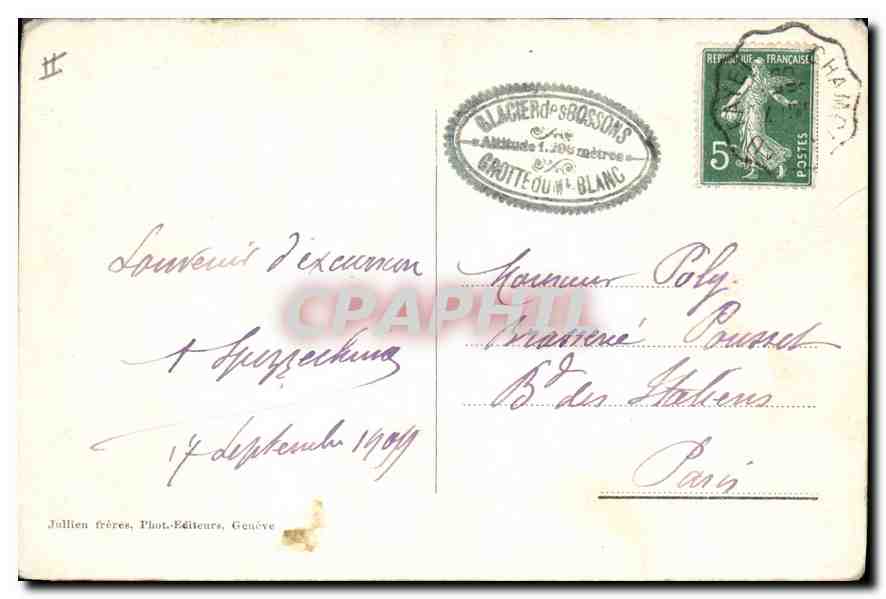 GLACIER des BOSSONS
Altitude 1.200 mètres
GROTTE DU Mt BLANC
REPUBLIQUE FRANÇAISE
5c
POSTES
CHAMO
Souvenir d'excursion
17 Septembre 1909
Monsieur Poly.
Brasserie Pousset
Bd des Italiens
Paris
CPAPHIL
Jullien frères, Phot.-Editeurs, Genève